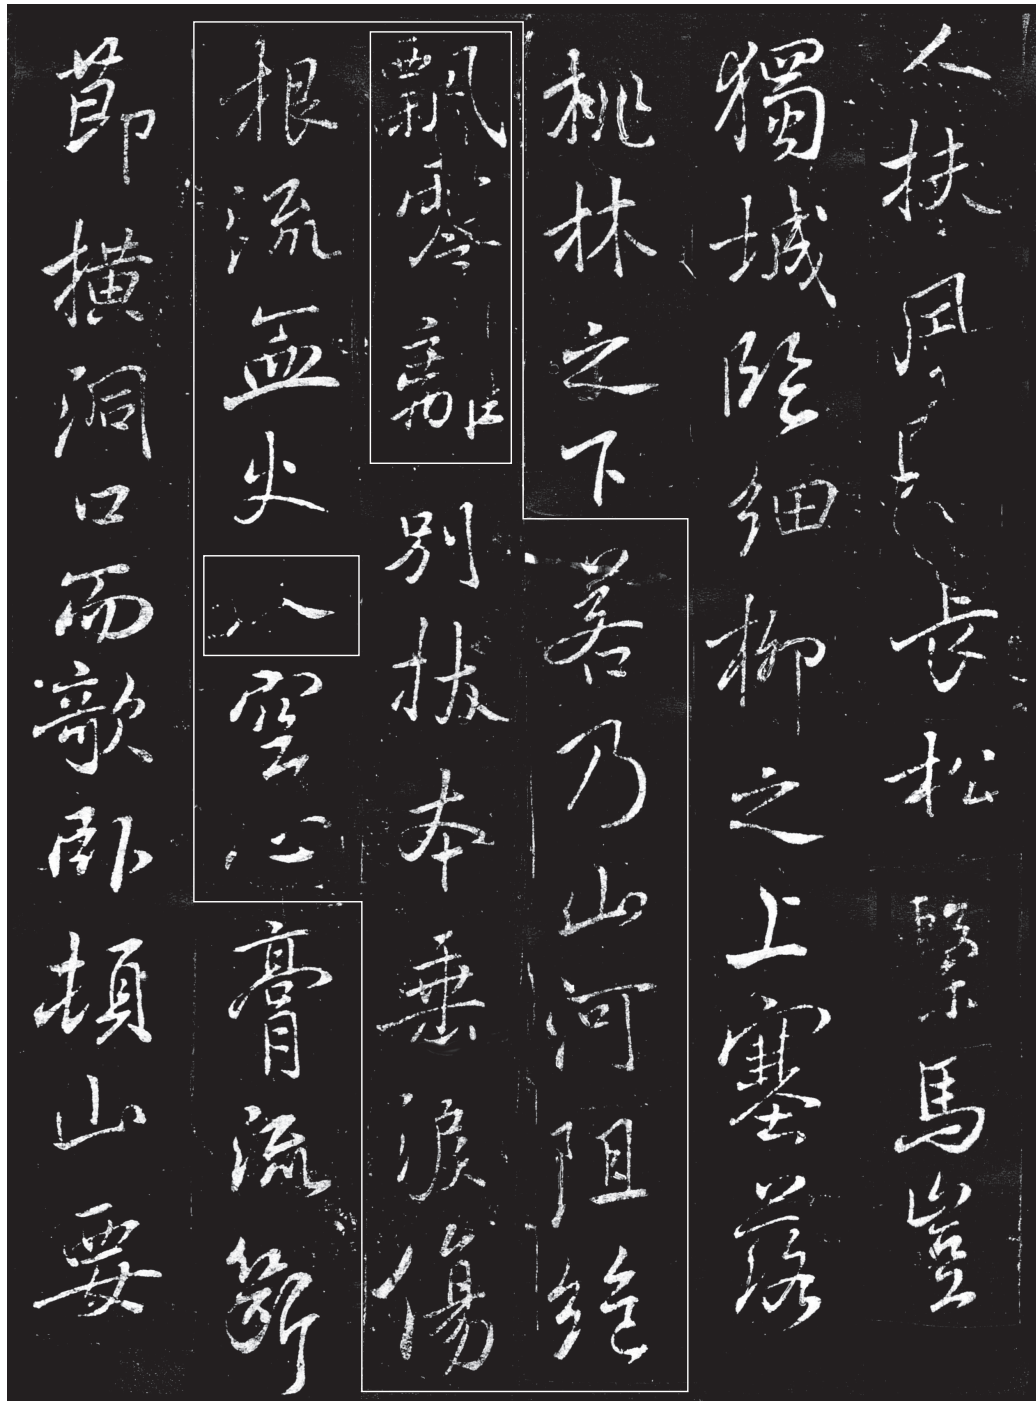 人扶風則長松繫馬豈
獨城臨細柳之上塞落
桃林之下若乃山河阻絕
飄零離別拔本垂淚傷
根流血火入空心膏流斷
節橫洞口而欹臥頓山要